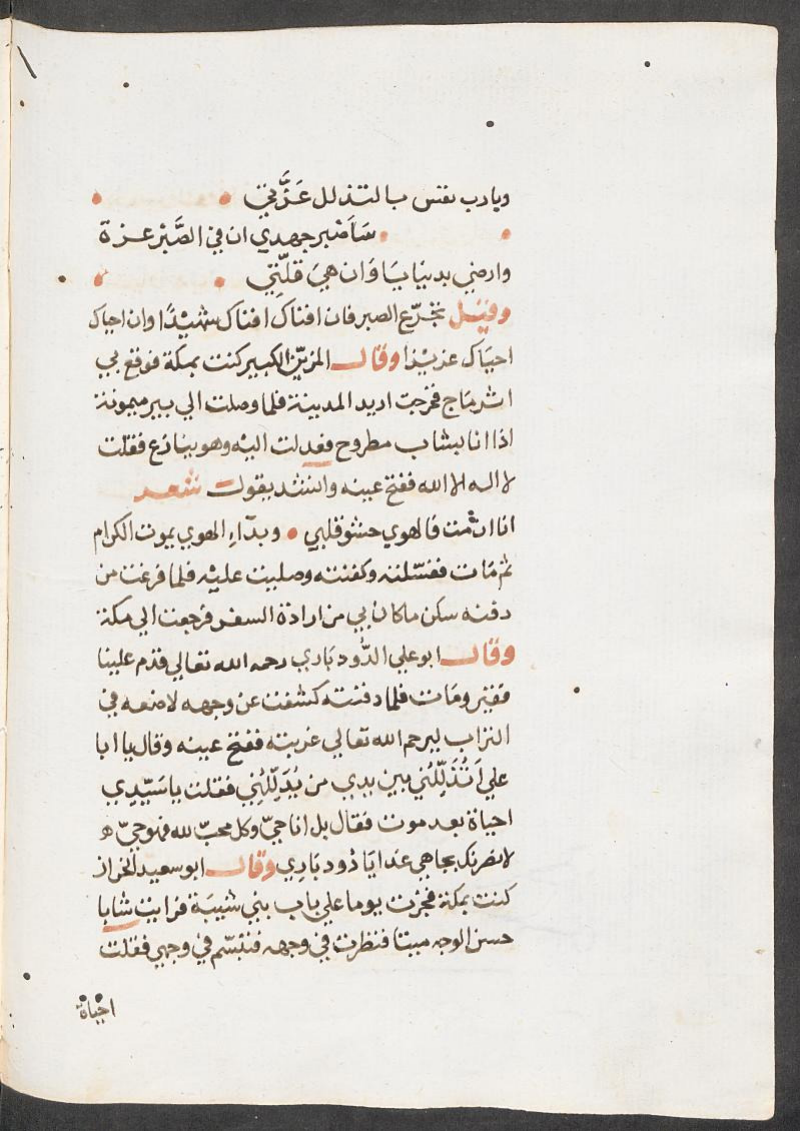 ويارب نفس بالتذلل عَزَّتي
سَأصْبر جهدي ان في الصَّبْر عزة
وارضي بدنيايَا وَان هيَ قَلّتِي
وقيل تجرّع الصبر فان افناك افناك شهيْدًا وان احياك
احيَاك عزيْزا وقال المزيّن الكبير كنت بمكة فوقع بي
انزعاج فخرجت اريد المدينة فلما وصلت الي بير ميمونة
اذا انا بشاب مطروح فعدلت اليه وهو ينازع فقلت
لا اله الا الله ففتح عينه وانشد يقول شعر
انا ان مت فالهوي حشو قلبي وبدآءِ الهوي يموت الكرام
ثم مَات فغسّلته وكفنته وصليت عليْه فلما فرغت من
دفنه سكن ما كان بي من ارادة السفر فرجعت الي مكة
وقال ابو علي الرُّودبَاري رحمه الله تعالي قدم علينا
فقيْر ومَات فلما دفنته كشفت عن وجهه لاضعه في
التراب ليرحم الله تعالي غربته ففتح عينه وقال يا ابا
علي اَتُذَلِّلُني بين يدي من يُدَلِّلُنِي فقلت يا سَيّدِي
احياة بعد موت فقال بل انا حيّ وكل محبّ لله فهو حيّ
لانصرنك بجاهي غدا يَا رُودبَارِي وقال ابو سعيد الخراز
كنت بمكة فجزت يوما علي باب بني شيبَة فرايت شابا
حسن الوجه ميتا فنظرت في وجهه فتبسّم في وجهي فقلت
احياة